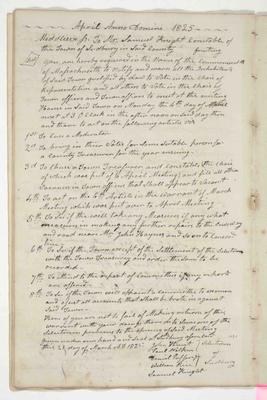 April Anno Domini 1825
Middlesex Ss. To Mr. Samuel Puffer Constable of
the Town of Sudbury in Said County Greeting
You are hereby required in the Name of the Commonwealth
of Massachusetts to Notify and warn all the Inhabitants
of Said Town qualified by Law to Vote in the choice of
Representatives and all those to Vote in the choice of
Town officers and Town affairs to meet at the meeting
House in Said Town on Monday the 4th day of April
next at O Clock in the afternoon on said day then
and there to act on the following articles viz
1st To choose a Moderator
2d To bring in their Votes for Some Suitable person for
a County Treasurer for the year ensuing
3d To choose and Constables (the choice
of which was put of to April Meeting) and fill all other
Vacancies in Town offices that Shall appear to be
4th To act on the Article in the warrant of March
Meeting which was put over to April Meeting
5th To See if the will take any Measures if any what
measures in making any further repairs to the
road near Mr John
6th To See if the Town accept of the Settlement of the Selectmen
with the Town Treasurer and order the Same to be
recorded
7th To attend to the report of Committees if any reports
are offered
8th To See if the Town will appoint a committee to examine
and adjust all accounts that Shall be brot in against
Said Town
Hereof you are not to fail of Making return of this
warrant with your doings thereon to Some one of the
Selectmen previous to the opening of Said Meeting
Given under our hands and seal at Sudbury aforesaid
this day of March AD 1825
John Selectmen
of
William Sudbury
Samuel